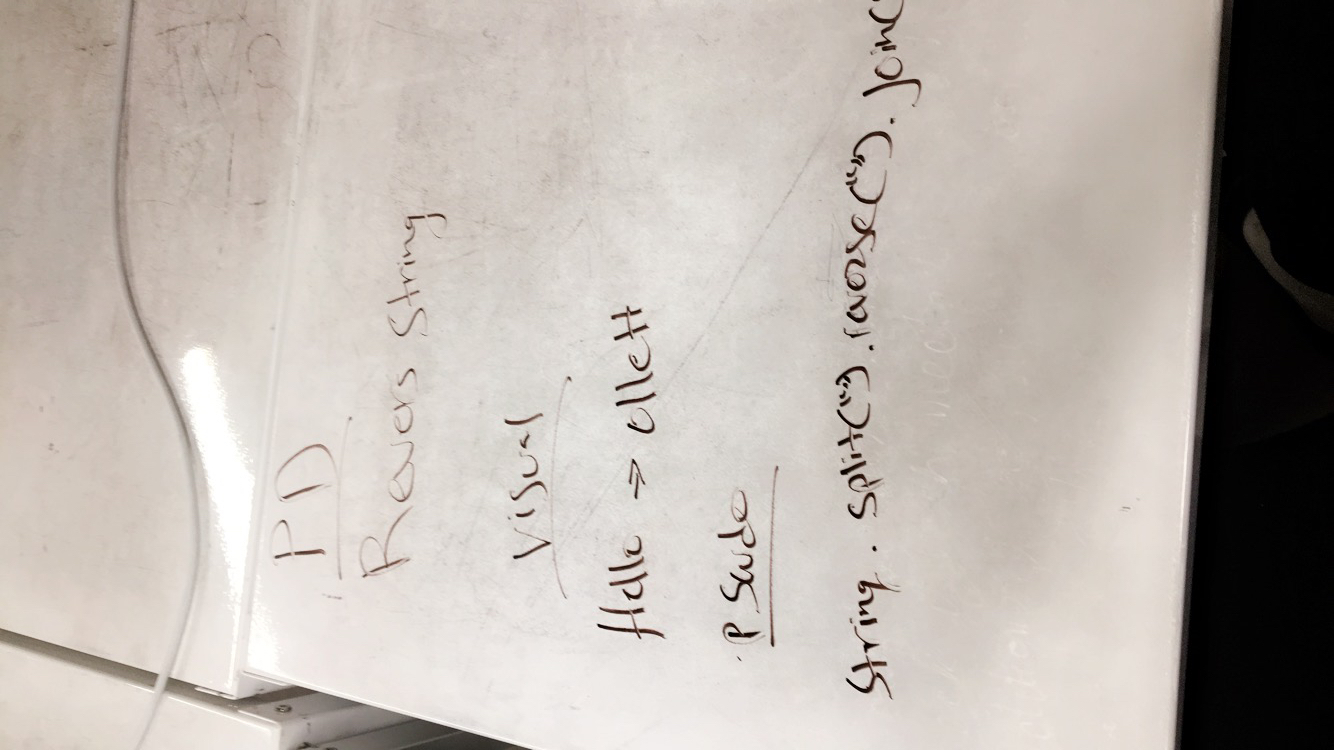 PD
Revers String
Visual
Hello → olleH
PSudo
String. Split("").reverse("").join(